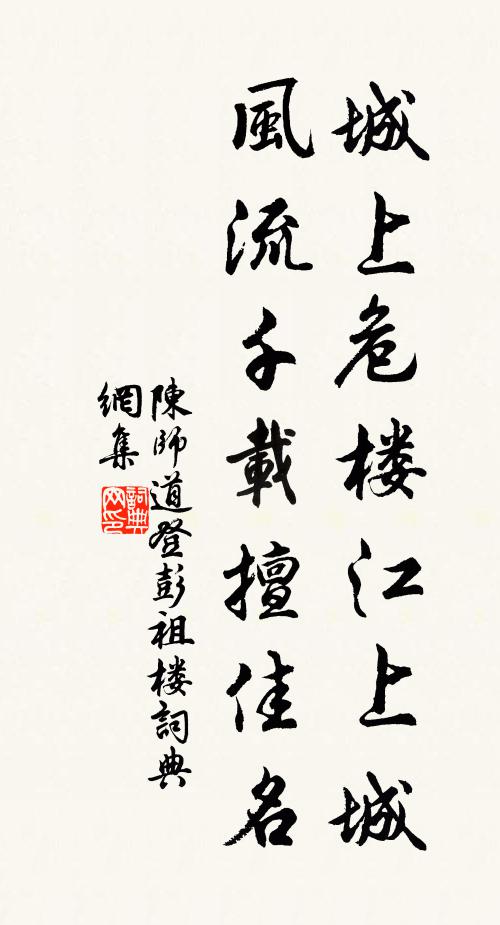 城上危楼江上城
風流千載擅佳名
陳師道登彭祖楼詞典
網集
詞典网印